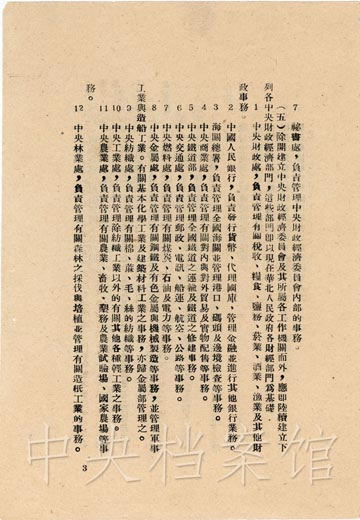 7 秘書處，負責管理中央財政經濟委員會內部的事務。
（五）除開建立中央財政經濟委員會及其所屬各工作機關而外，應即陸續建立下
列各中央財政經濟部門，這些部門卽以現在華北人民政府各財經部門為基礎
1 中央財政處，負責管理有關稅收、糧食、鹽務、菸業、酒業、漁業及其他財
政事務。
2 中國人民銀行，負責發行貨幣、代理國庫、管理金融並進行其他銀行業務。
3 海關總署，負責管理全國海關並管理港口、碼頭及邊境檢查等事務。
4 中央商業處，負責管理有關對內與對外貿易及實物配售等事務。
5 中央鐵道部，負責管理全國鐵道之運輸及鐵道之修建事務。
6 中央交通處，負責管理郵政、電訊、船運、航空、公路等事務。
7 中央燃料處，負責管理有關煤炭、石油及電力等事務。
8 中央金屬處，負責管理有關鋼鐵及有色金屬與機械製造等事務，並管理軍事
工業與造船工業。有關基本化學工業及建築材料工業之事務，亦歸金屬部管理之。
9 中央紡織處，負責管理有關棉、蔴、毛、絲的紡織等事務。
10 中央工業處，負責管理除紡織工業以外的有關其他各種輕工業之事務。
11 中央農業處，負責管理有關農業、畜牧、墾務及農業試驗場、國家農場等事
務。
12 中央林業處，負責管理有關森林之採伐與培植並管理有關造紙工業的事務。
3
中央档案馆